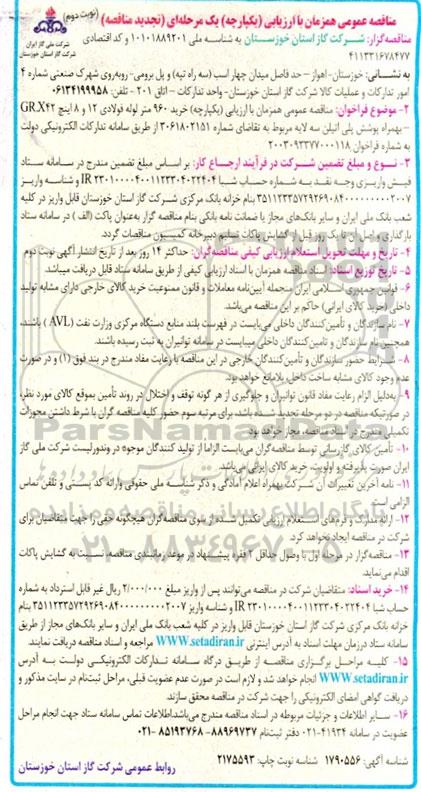 مناقصه عمومی همزمان با ارزیابی (یکپارچه) یک مرحله‌ای (تجدید مناقصه) (نوبت دوم)
شرکت ملی گاز ایران
شرکت گاز استان خوزستان
مناقصه‌گزار: شرکت گاز استان خوزستان به شناسه ملی ۱۰۱۰۱۸۸۹۲۰۱ و کد اقتصادی
۴۱۱۳۳۱۶۷۸۴۷۷
به نشانی: خوزستان-اهواز- حد فاصل میدان چهار اسب (سه راه تپه) و پل برومی- روبه‌روی شهرک صنعتی شماره ۴
امور تدارکات و عملیات کالا شرکت گاز استان خوزستان-واحد تدارکات - اتاق ۲۰۱ - تلفن: ۰۶۱۳۴۱۹۹۹۵۸
۲- موضوع فراخوان: مناقصه عمومی همزمان با ارزیابی (یکپارچه) خرید ۹۶۰ متر لوله فولادی ۱۲ و ۸ اینچ GR.X۴۲
- بهمراه پوشش پلی اتیلن سه لایه مربوط به تقاضای شماره ۳۰۶۱۸۰۲۱۵۱ از طریق سامانه تدارکات الکترونیکی دولت به
شماره فراخوان ۲۰۰۳۰۹۳۳۷۷۰۰۰۱۱۸
۳- نوع و مبلغ تضمین شرکت در فرآیند ارجاع کار: بر اساس مبلغ تضمین مندرج در سامانه ستاد
فیش واریزی وجه نقد به شماره حساب شبا IR ۲۳۰۱۰۰۰۰۴۰۰۱۱۲۳۳۰۴۰۲۲۴۰۴ و شناسه واریز
بنام خزانه بانک مرکزی شرکت گاز استان خوزستان قابل واریز در کلیه
شعب بانک ملی ایران و سایر بانک‌های مجاز یا ضمانت نامه بانکی بنام مناقصه گزار به‌عنوان پاکت (الف) در سامانه ستاد
بارگذاری و اصل آن تا یک روز قبل از گشایش پاکات تسلیم دبیرخانه کمیسون مناقصات گردد.
۴- تاریخ و مهلت تحویل استعلام ارزیابی کیفی مناقصه‌گران: حداکثر ۱۴ روز بعد از تاریخ انتشار آگهی نوبت دوم
۵- تاریخ توزیع اسناد: اسناد مناقصه همزمان با اسناد ارزیابی کیفی از طریق سامانه ستاد قابل دریافت میباشد.
۶- قوانین جمهوری اسلامی ایران منجمله آیین‌نامه معاملات و قانون ممنوعیت خرید کالای خارجی دارای مشابه تولید
داخلی (خرید کالای ایرانی) حاکم بر این مناقصه می‌باشد.
۷- نام سازندگان و تأمین‌کنندگان داخلی می‌بایست در فهرست بلند منابع دستگاه مرکزی وزارت نفت (AVL) باشند،
همچنین نام سازندگان و تامین‌کنندگان داخلی میبایست در سامانه توانیران به ثبت رسیده باشند.
۸- شرایط حضور سازندگان و تأمین‌کنندگان خارجی در این مناقصه با رعایت مفاد مندرج در بند فوق (۱) و در صورت
عدم وجود کالای مشابه ساخت داخل، بلامانع خواهد بود.
۹- به‌دلیل الزام رعایت مفاد قانون توانیران و جلوگیری از هر گونه توقف و اختلال در روند تأمین بموقع کالای مورد نظر،
در صورتیکه مناقصه در دو مرحله تجدید شده باشد، برای مرتبه سوم حضور کلیه مناقصه گران با شرط داشتن مجوزات
تکمیلی مندرج در اسناد مناقصه، مجاز خواهد بود.
۱۰- تأمین کالای گازرسانی توسط مناقصه‌گران می‌بایست الزاما از تولید کنندگان موجود در وندورلیست شرکت ملی گاز
ایران صورت پذیرفته و اولویت، خرید کالای ایرانی می‌باشد.
۱۱- نامه آخرین تغییرات آن شرکت بهمراه اعلام آمادگی و ذکر شناسه ملی حقوقی وارائه کد پستی و تلفن تماس
الزامی است
۱۲- ارائه مدارک و فرم‌های استعلام ارزیابی تکمیل شده از سوی مناقصه‌گران هیچگونه حقی را جهت متقاضیان برای
شرکت در مناقصه ایجاد نخواهد کرد.
۱۳- مناقصه‌گزار در مرحله اول با وصول حداقل ۲ فقره پیشنهاد در موعد زمانبندی مناقصه، نسبت به گشایش پاکات
اقدام می‌نماید.
۱۴- خرید اسناد: متقاضیان شرکت در مناقصه می‌توانند پس از واریز مبلغ ۲/۰۰۰/۰۰۰ ریال غیر قابل استرداد به شماره
حساب شبا IR ۲۳۰۱۰۰۰۰۴۰۰۱۱۲۳۳۰۴۰۲۲۴۰۴ و شناسه واریز بنام
خزانه بانک مرکزی شرکت گاز استان خوزستان قابل واریز در کلیه شعب بانک ملی ایران و سایر بانک‌های مجاز از طریق
سامانه ستاد درزمان مهلت اسناد به آدرس اینترنتی WWW.setadiran.ir مراجعه و اسناد مناقصه دریافت نمایند.
۱۵- کلیه مراحل برگزاری مناقصه از طریق درگاه سامانه تدارکات الکترونیکی دولت به آدرس
WWW.setadiran.ir انجام خواهد شد و لازم است در صورت عدم عضویت قبلی، مراحل ثبت‌نام در سایت مذکور و
دریافت گواهی امضای الکترونیکی را جهت شرکت در مناقصه محقق سازند.
۱۶- سایر اطلاعات و جزئیات مربوطه در اسناد مناقصه مندرج می‌باشد.اطلاعات تماس سامانه ستاد جهت انجام مراحل
عضویت در سامانه ۴۱۹۳۴-۰۲۱ دفتر ثبت‌نام ۸۸۹۶۹۷۳۷- ۸۵۱۹۳۷۶۸-۰۲۱
شناسه آگهی: ۱۷۹۰۵۵۶ شناسه نوبت چاپ: ۲۱۷۵۵۹۳
روابط عمومی شرکت گاز استان خوزستان
ParsNamadData
۰۲۱-۸۸۳۴۹۶۷۰-۵